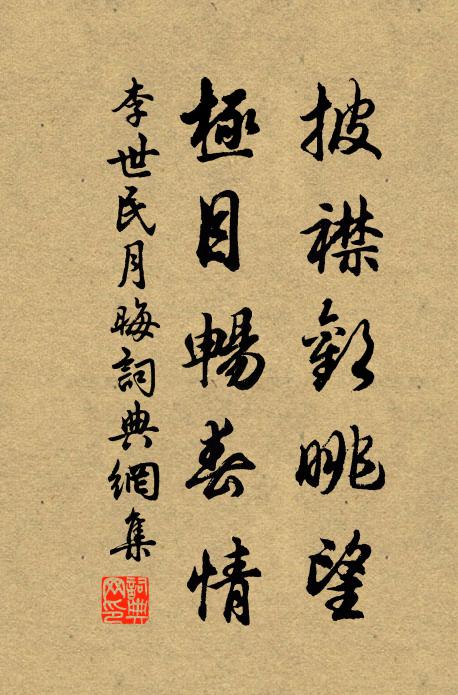 披襟歡眺望
極目暢春情
李世民月晦詞典網集
詞典网印